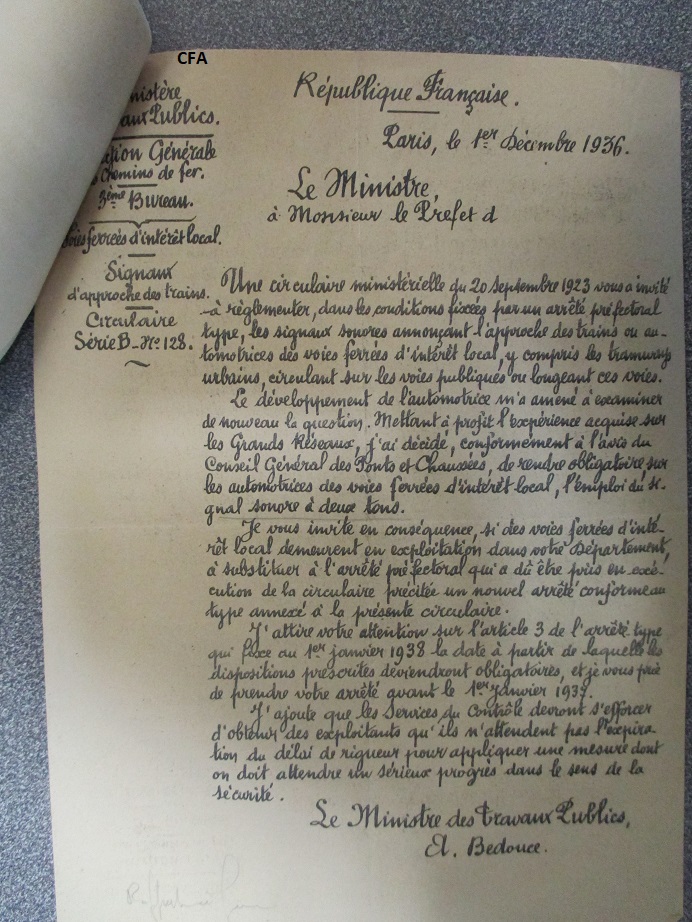 CFA
République Française.
Paris, le 1er Décembre 1936.
Le Ministre,
à Monsieur le Préfet d
nistère
aux Publics.
tion Générale
Chemins de fer.
3ème Bureau.
oies ferrées d'intérêt local.
Signaux
d'approche des trains.
Circulaire
Série B - No 128.
Une circulaire ministérielle du 20 septembre 1923 vous a invité
à règlementer, dans les conditions fixées par un arrêté préfectoral
type, les signaux sonores annonçant l'approche des trains ou au-
tomotrices des voies ferrées d'intérêt local, y compris les tramways
urbains, circulant sur les voies publiques ou longeant ces voies.
Le développement de l'automotrice m'a amené à examiner
de nouveau la question. Mettant à profit l'expérience acquise sur
les Grands Réseaux, j'ai décidé, conformément à l'avis du
Conseil Général des Ponts et Chaussées, de rendre obligatoire sur
les automotrices des voies ferrées d'intérêt local, l'emploi du si-
gnal sonore à deux tons.
Je vous invite en conséquence, si des voies ferrées d'inté-
rêt local demeurent en exploitation dans votre Département,
à substituer à l'arrêté préfectoral qui a dû être pris en exé-
cution de la circulaire précitée un nouvel arrêté conforme au
type annexé à la présente circulaire.
J'attire votre attention sur l'article 3 de l'arrêté type
qui fixe au 1er janvier 1938 la date à partir de laquelle les
dispositions prescrites deviendront obligatoires, et je vous prie
de prendre votre arrêté avant le 1er Janvier 1937.
J'ajoute que les services du Contrôle devront s'efforcer
d'obtenir des exploitants qu'ils n'attendent pas l'expira-
tion du délai de rigueur pour appliquer une mesure dont
on doit attendre un sérieux progrès dans le sens de la
sécurité.
Le Ministre des Travaux Publics,
A. Bedouce.